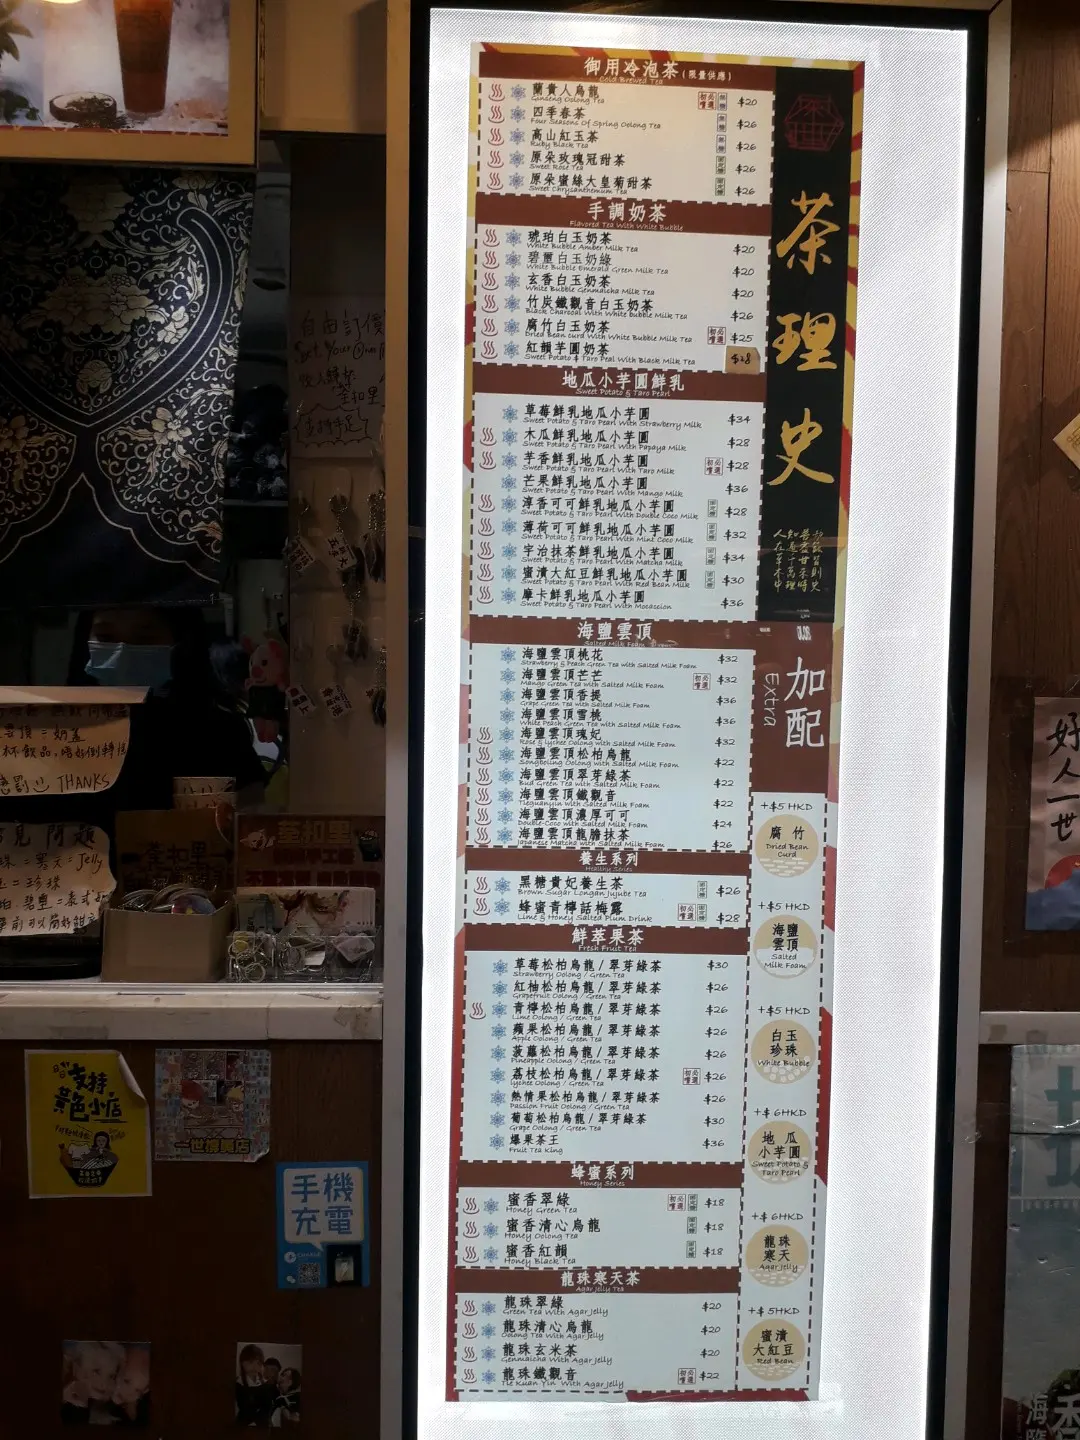 御用冷泡茶(限量供應)
Cold Brewed Tea
蘭貴人烏龍 $20
Ginseng Oolong Tea
四季春茶 $26
Four Seasons Of Spring Oolong Tea
高山紅玉茶 $26
Ruby Black Tea
原朵玫瑰冠甜茶 $26
Sweet Rose Tea
原朵蜜絲大皇菊甜茶 $26
Sweet Chrysanthemum Tea
手調奶茶
Flavored Tea With White Bubble
琥珀白玉奶茶 $20
White Bubble Amber Milk Tea
碧璽白玉奶綠 $20
White Bubble Emerald Green Milk Tea
玄香白玉奶茶 $20
White Bubble Genmaicha Milk Tea
竹炭鐵觀音白玉奶茶 $26
Black Charcoal With White Bubble Milk Tea
腐竹白玉奶茶 $25
Dried Bean curd With White Bubble Milk Tea
紅韻芋圓奶茶 $18
Sweet Potato & Taro Peal With Black Milk Tea
地瓜小芋圓鮮乳
Sweet Potato & Taro Pearl
草莓鮮乳地瓜小芋圓 $34
Sweet Potato & Taro Pearl With Strawberry Milk
木瓜鮮乳地瓜小芋圓 $28
Sweet Potato & Taro Pearl With Papaya Milk
芋香鮮乳地瓜小芋圓 $28
Sweet Potato & Taro Pearl With Taro Milk
芒果鮮乳地瓜小芋圓 $36
Sweet Potato & Taro Pearl With Mango Milk
淳香可可鮮乳地瓜小芋圓 $28
Sweet Potato & Taro Pearl With Double Coco Milk
薄荷可可鮮乳地瓜小芋圓 $32
Sweet Potato & Taro Pearl With Mint Coco Milk
宇治抹茶鮮乳地瓜小芋圓 $34
Sweet Potato & Taro Pearl With Matcha Milk
蜜漬大紅豆鮮乳地瓜小芋圓 $30
Sweet Potato & Taro Pearl With Red Bean Milk
摩卡鮮乳地瓜小芋圓 $36
Sweet Potato & Taro Pearl With Mocassion
海鹽雲頂
Salted Milk Foam
海鹽雲頂桃花 $32
Strawberry & Peach Green Tea with Salted Milk Foam
海鹽雲頂芒芒 $32
Mango Green Tea with Salted Milk Foam
海鹽雲頂香提 $36
Grape Green Tea with Salted Milk Foam
海鹽雲頂雪桃 $36
White Peach Green Tea with Salted Milk Foam
海鹽雲頂瑰妃 $32
Rose & Lychee Oolong with Salted Milk Foam
海鹽雲頂松柏烏龍 $22
Songboling Oolong with Salted Milk Foam
海鹽雲頂翠芽綠茶 $22
Bud Green Tea with Salted Milk Foam
海鹽雲頂鐵觀音 $22
Tieguanyin with Salted Milk Foam
海鹽雲頂濃厚可可 $24
Double-Coco with Salted Milk Foam
海鹽雲頂龍膽抹茶 $26
Japanese Matcha with Salted Milk Foam
養生系列
Healthy Series
黑糖貴妃養生茶 $26
Brown Sugar Longan Jujube Tea
蜂蜜青檸話梅露 $28
Lime & Honey Salted Plum Drink
鮮萃果茶
Fresh Fruit Tea
草莓松柏烏龍/翠芽綠茶 $30
Strawberry Oolong / Green Tea
紅柚松柏烏龍/翠芽綠茶 $26
Grapefruit Oolong / Green Tea
青檸松柏烏龍/翠芽綠茶 $26
Lime Oolong / Green Tea
蘋果松柏烏龍/翠芽綠茶 $26
Apple Oolong / Green Tea
菠蘿松柏烏龍/翠芽綠茶 $26
Pineapple Oolong / Green Tea
荔枝松柏烏龍/翠芽綠茶 $26
lychee Oolong / Green Tea
熱情果松柏烏龍/翠芽綠茶 $26
Passion Fruit Oolong / Green Tea
葡萄松柏烏龍/翠芽綠茶 $30
Grape Oolong / Green Tea
爆果茶王 $36
Fruit Tea King
蜂蜜系列
Honey Series
蜜香翠綠 $18
Honey Green Tea
蜜香清心烏龍 $18
Honey Oolong Tea
蜜香紅韻 $18
Honey Black Tea
龍珠寒天茶
Agar Jelly Tea
龍珠翠綠 $20
Green Tea With Agar Jelly
龍珠清心烏龍 $20
Oolong Tea With Agar Jelly
龍珠玄米茶 $20
Genmaicha With Agar Jelly
龍珠鐵觀音 $22
Tie Kuan Yin With Agar Jelly
茶理史
加配
Extra
+$5 HKD
腐竹
Dried Bean
Curd
+$5 HKD
海鹽
雲頂
Salted
Milk Foam
+$5 HKD
白玉
珍珠
White Bubble
+$6 HKD
地瓜
小芋圓
Sweet Potato &
Taro Pearl
+$6HKD
龍珠
寒天
Agar Jelly
+$5HKD
蜜漬
大紅豆
Red Bean
自由訂價
THANKS
見問題
支持
黃色小店
手機
充電
好人一世